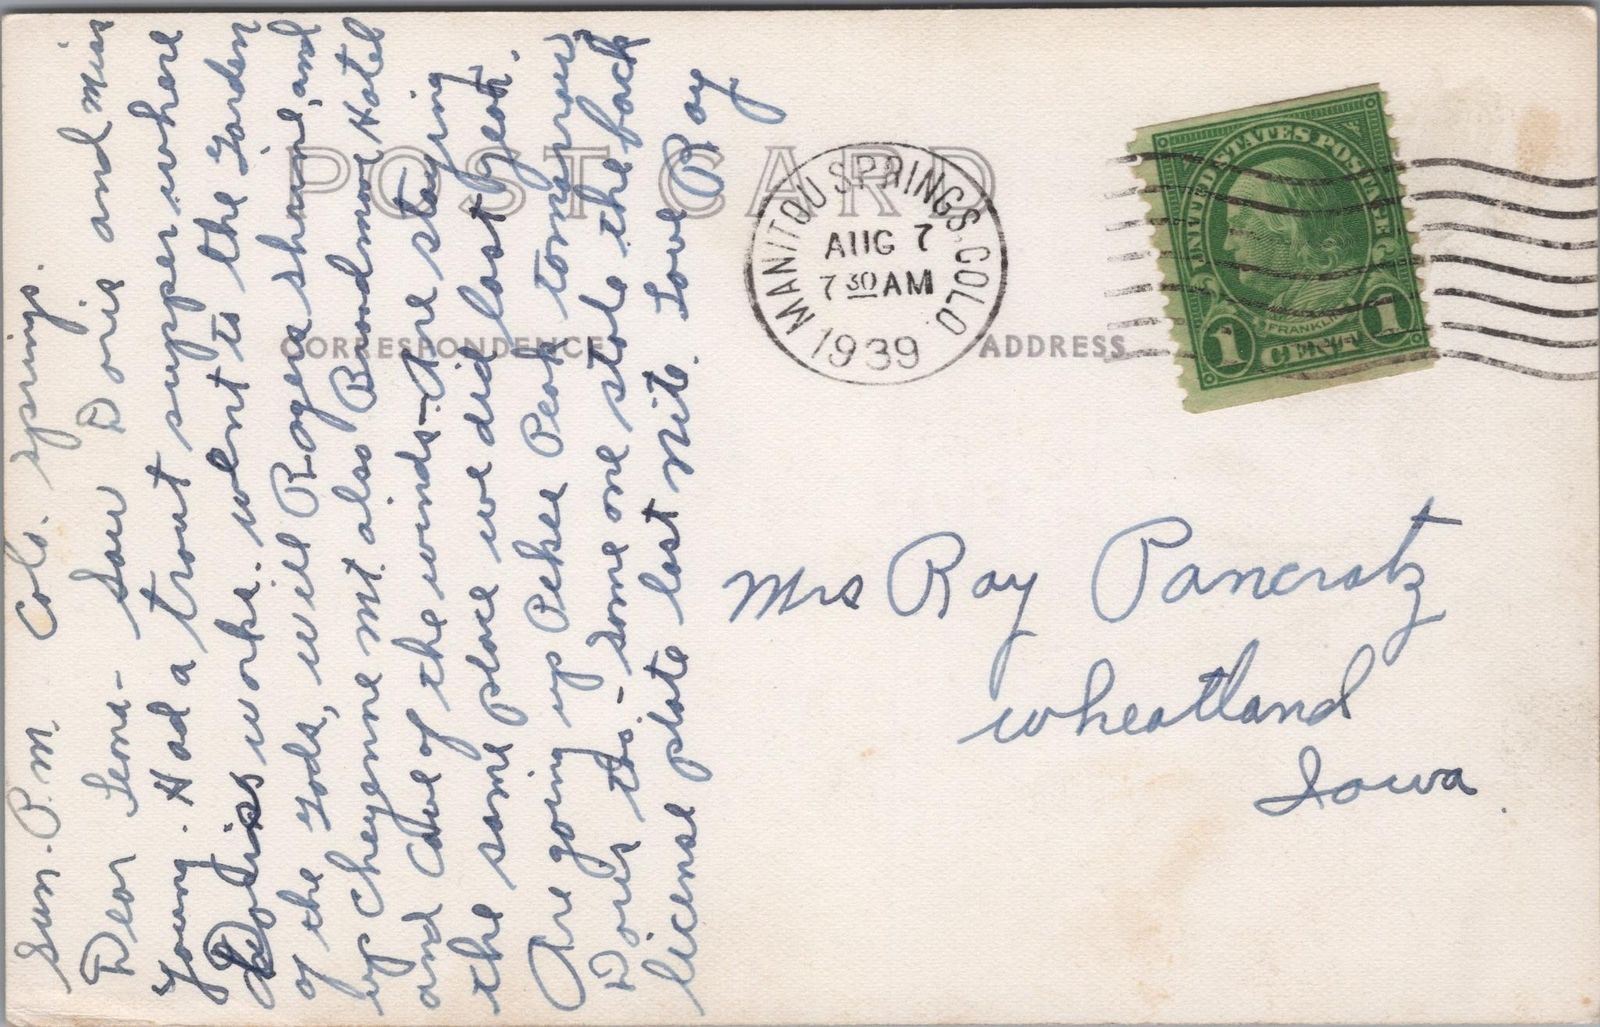 Sun. P.M. Colo. Springs.
Dear Lena - Saw Doris and Miss
Young. Had a trout supper where
Doriss works. Went to the Garden
of the Gods, Will Rogers shrine, and
up Cheyenne Mt. also Broadmoor Hotel
and Cave of the Winds - Are staying
the same place we did last year.
Are going up Pikes Peak tomorrow
Doris to - Some one stole the back
license plate last nite. Love Ray
POST CARD
CORRESPONDENCE
ADDRESS
MANITOU SPRINGS. COLO.
AUG 7
7 30 AM
1939
UNITED STATES POSTAGE
FRANKLIN
1 CENT 1
Mrs Ray Pancratz
Wheatland
Iowa.